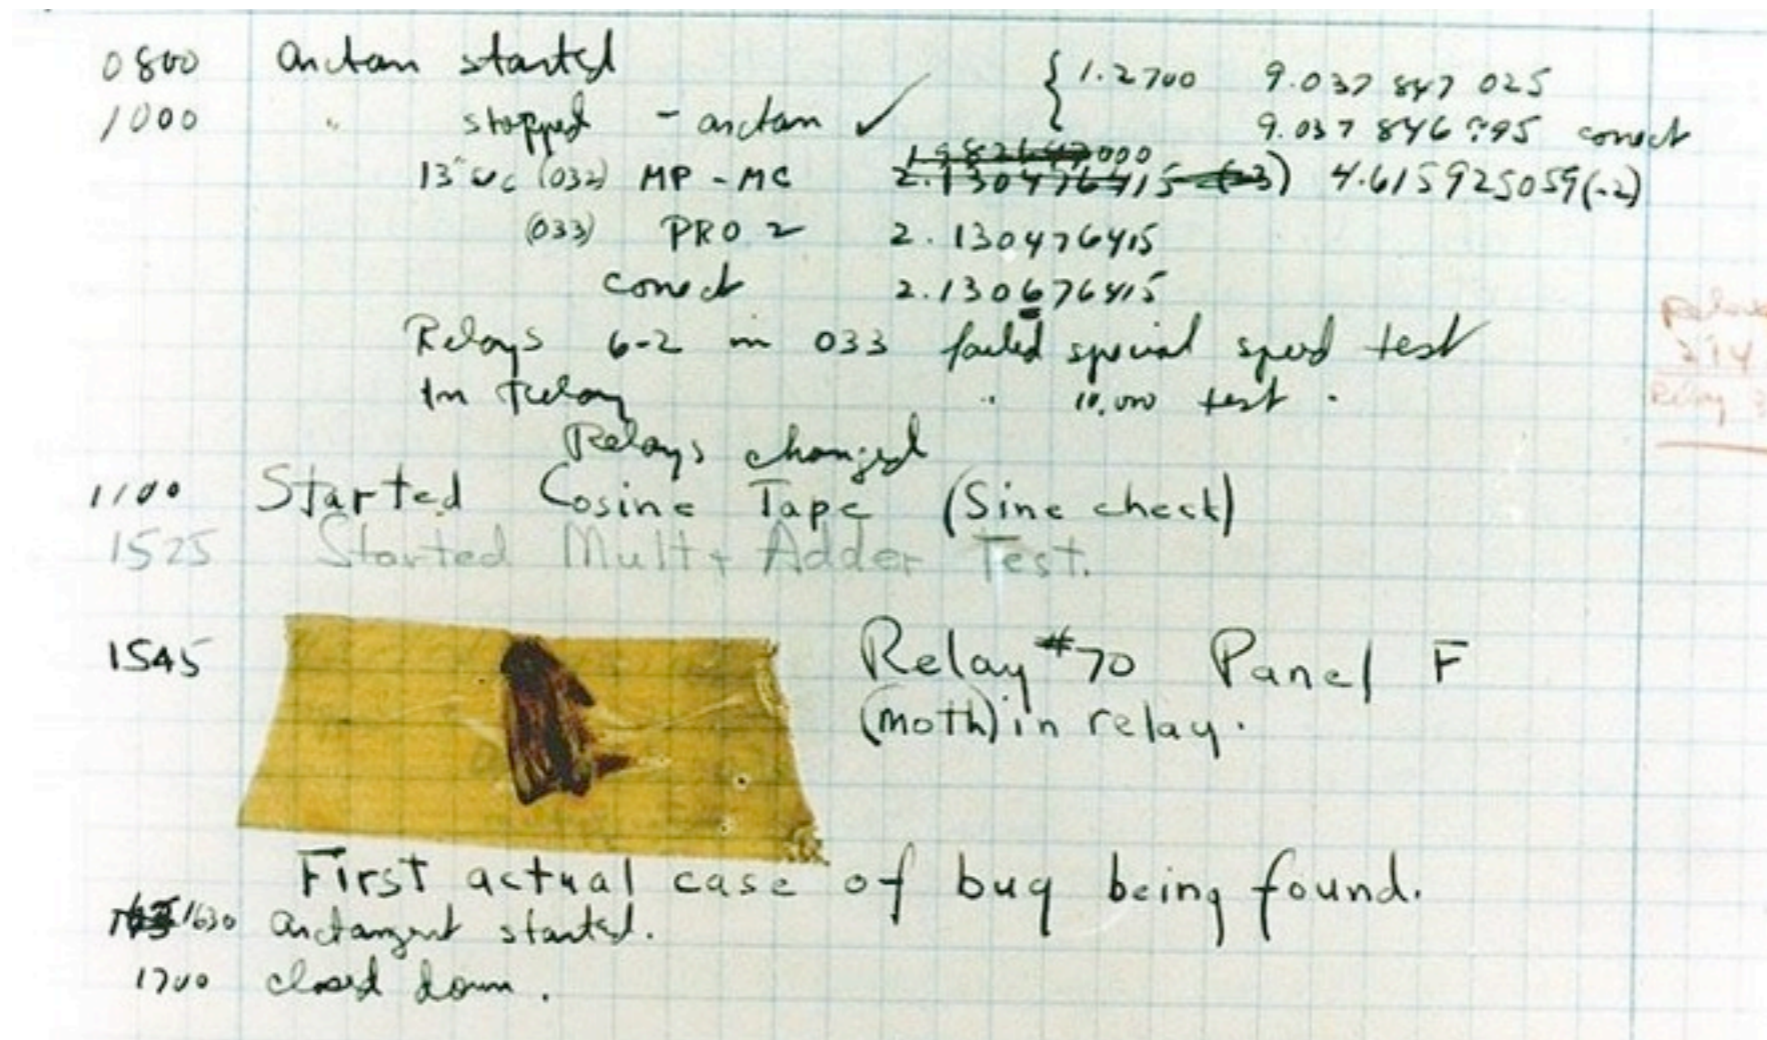 0800 arctan started { 1.2700 9.037 847 025
1000 " stopped - arctan ✓ 9.037 846 995 correct
1.982647000
13"uc (032) MP - MC 2.130476415 (-3) 4.615925059(-2)
(033) PRO 2 2.130476415
correct 2.130676415
Relays 6-2 in 033 failed special speed test
In relay " 10,000 test .
Relays changed
1100 Started Cosine Tape (Sine check)
1525 Started Mult + Adder Test.
1545 Relay #70 Panel F
(moth) in relay.
First actual case of bug being found.
1630 arctangent started.
1700 closed down .
Relay
Relay